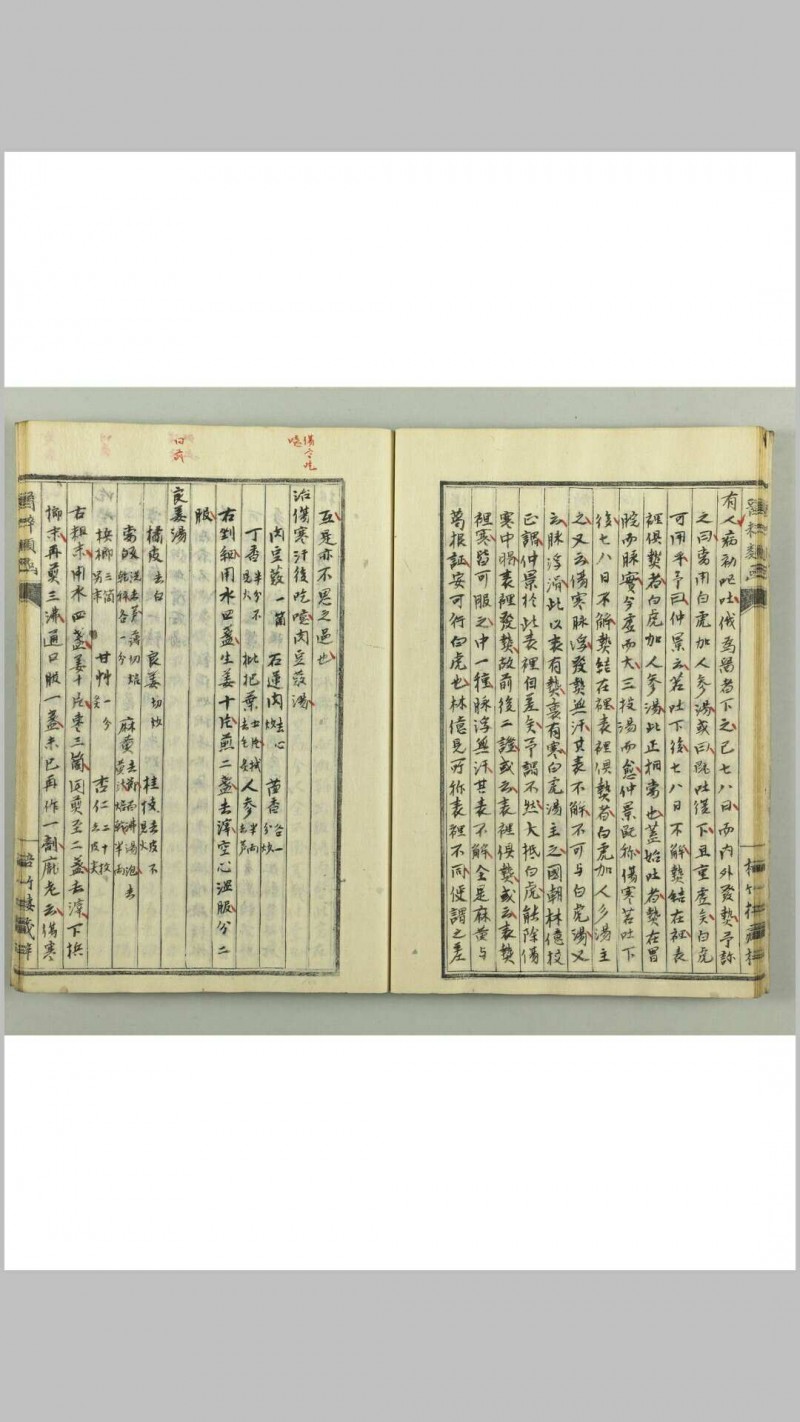 有人病初吐俄為醫者下之已七八日而内外發熱予診
之曰當用白虎加人參湯或曰既吐復下且重虛矣白虎
可用乎予曰仲景云若吐下後七八日不解熱結在裡表
裡俱熱者白虎加人參湯此正相當也蓋始吐者熱在胃
脘而脈實今虛而大三投湯而愈仲景既称傷寒若吐下
後七八日不解熱結在裡表裡俱熱者白虎加人參湯主
之又云傷寒脈浮發熱無汗其表不解不可与白虎湯又
云脉浮滑此以表有熱裏有寒白虎湯主之國朝林億校
正謂仲景於此表裡自差矣予謂不然大抵白虎能除傷
寒中暍表裡發熱故前後二證或云表裡俱熱或云表熱
裡寒皆可服之中一種脉浮無汗其表不解全是麻黄与
葛根証安可行白虎也林億見所称表裡不同便謂之差
互是亦不思之過也
傷寒吃噫
治傷寒汗後吃噫肉豆蔻湯
肉豆蔻一箇 石蓮肉去心炒 茴香各一分炒
丁香半分不見火 枇杷葉 人參半兩去芦
右剉細用水四盞生姜十片煎二盞去滓空心温服分二
服
良姜湯
橘皮去白 良姜切炒 桂枝去皮不見火
當归洗去芦薄切焙乾秤各一分 麻黄去節百沸湯泡去黄汁焙乾半兩
梹榔三箇別末 甘艸一分炙 杏仁二十枚去皮尖
右粗末用水四盞姜十片枣三箇同煎至二盞去滓下梹
榔末再煎三沸通口服一盞未已再作一劑龐老云傷寒